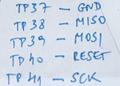 TP37 - GND
TP38 - MISO
TP39 - MOSI
TP40 - RESET
TP41 - SCK